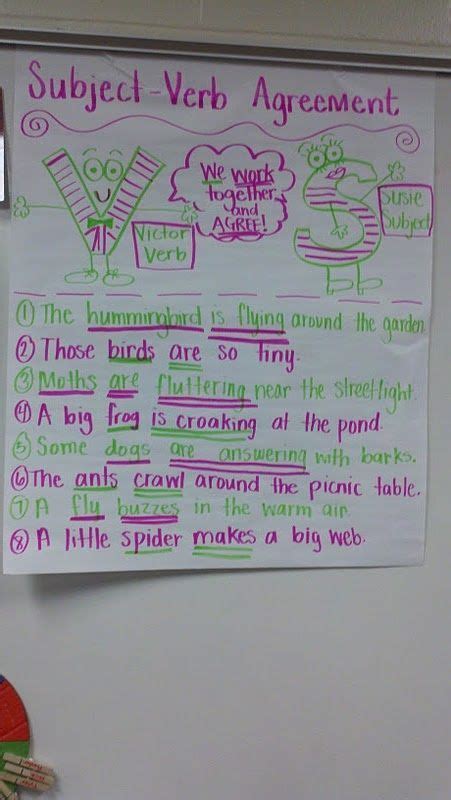 Subject-Verb Agreement
We work
together
and
AGREE!
Victor
Verb
Susie
Subject
① The hummingbird is flying around the garden.
② Those birds are so tiny.
③ Moths are fluttering near the streetlight.
④ A big frog is croaking at the pond.
⑤ Some dogs are answering with barks.
⑥ The ants crawl around the picnic table.
⑦ A fly buzzes in the warm air.
⑧ A little spider makes a big web.